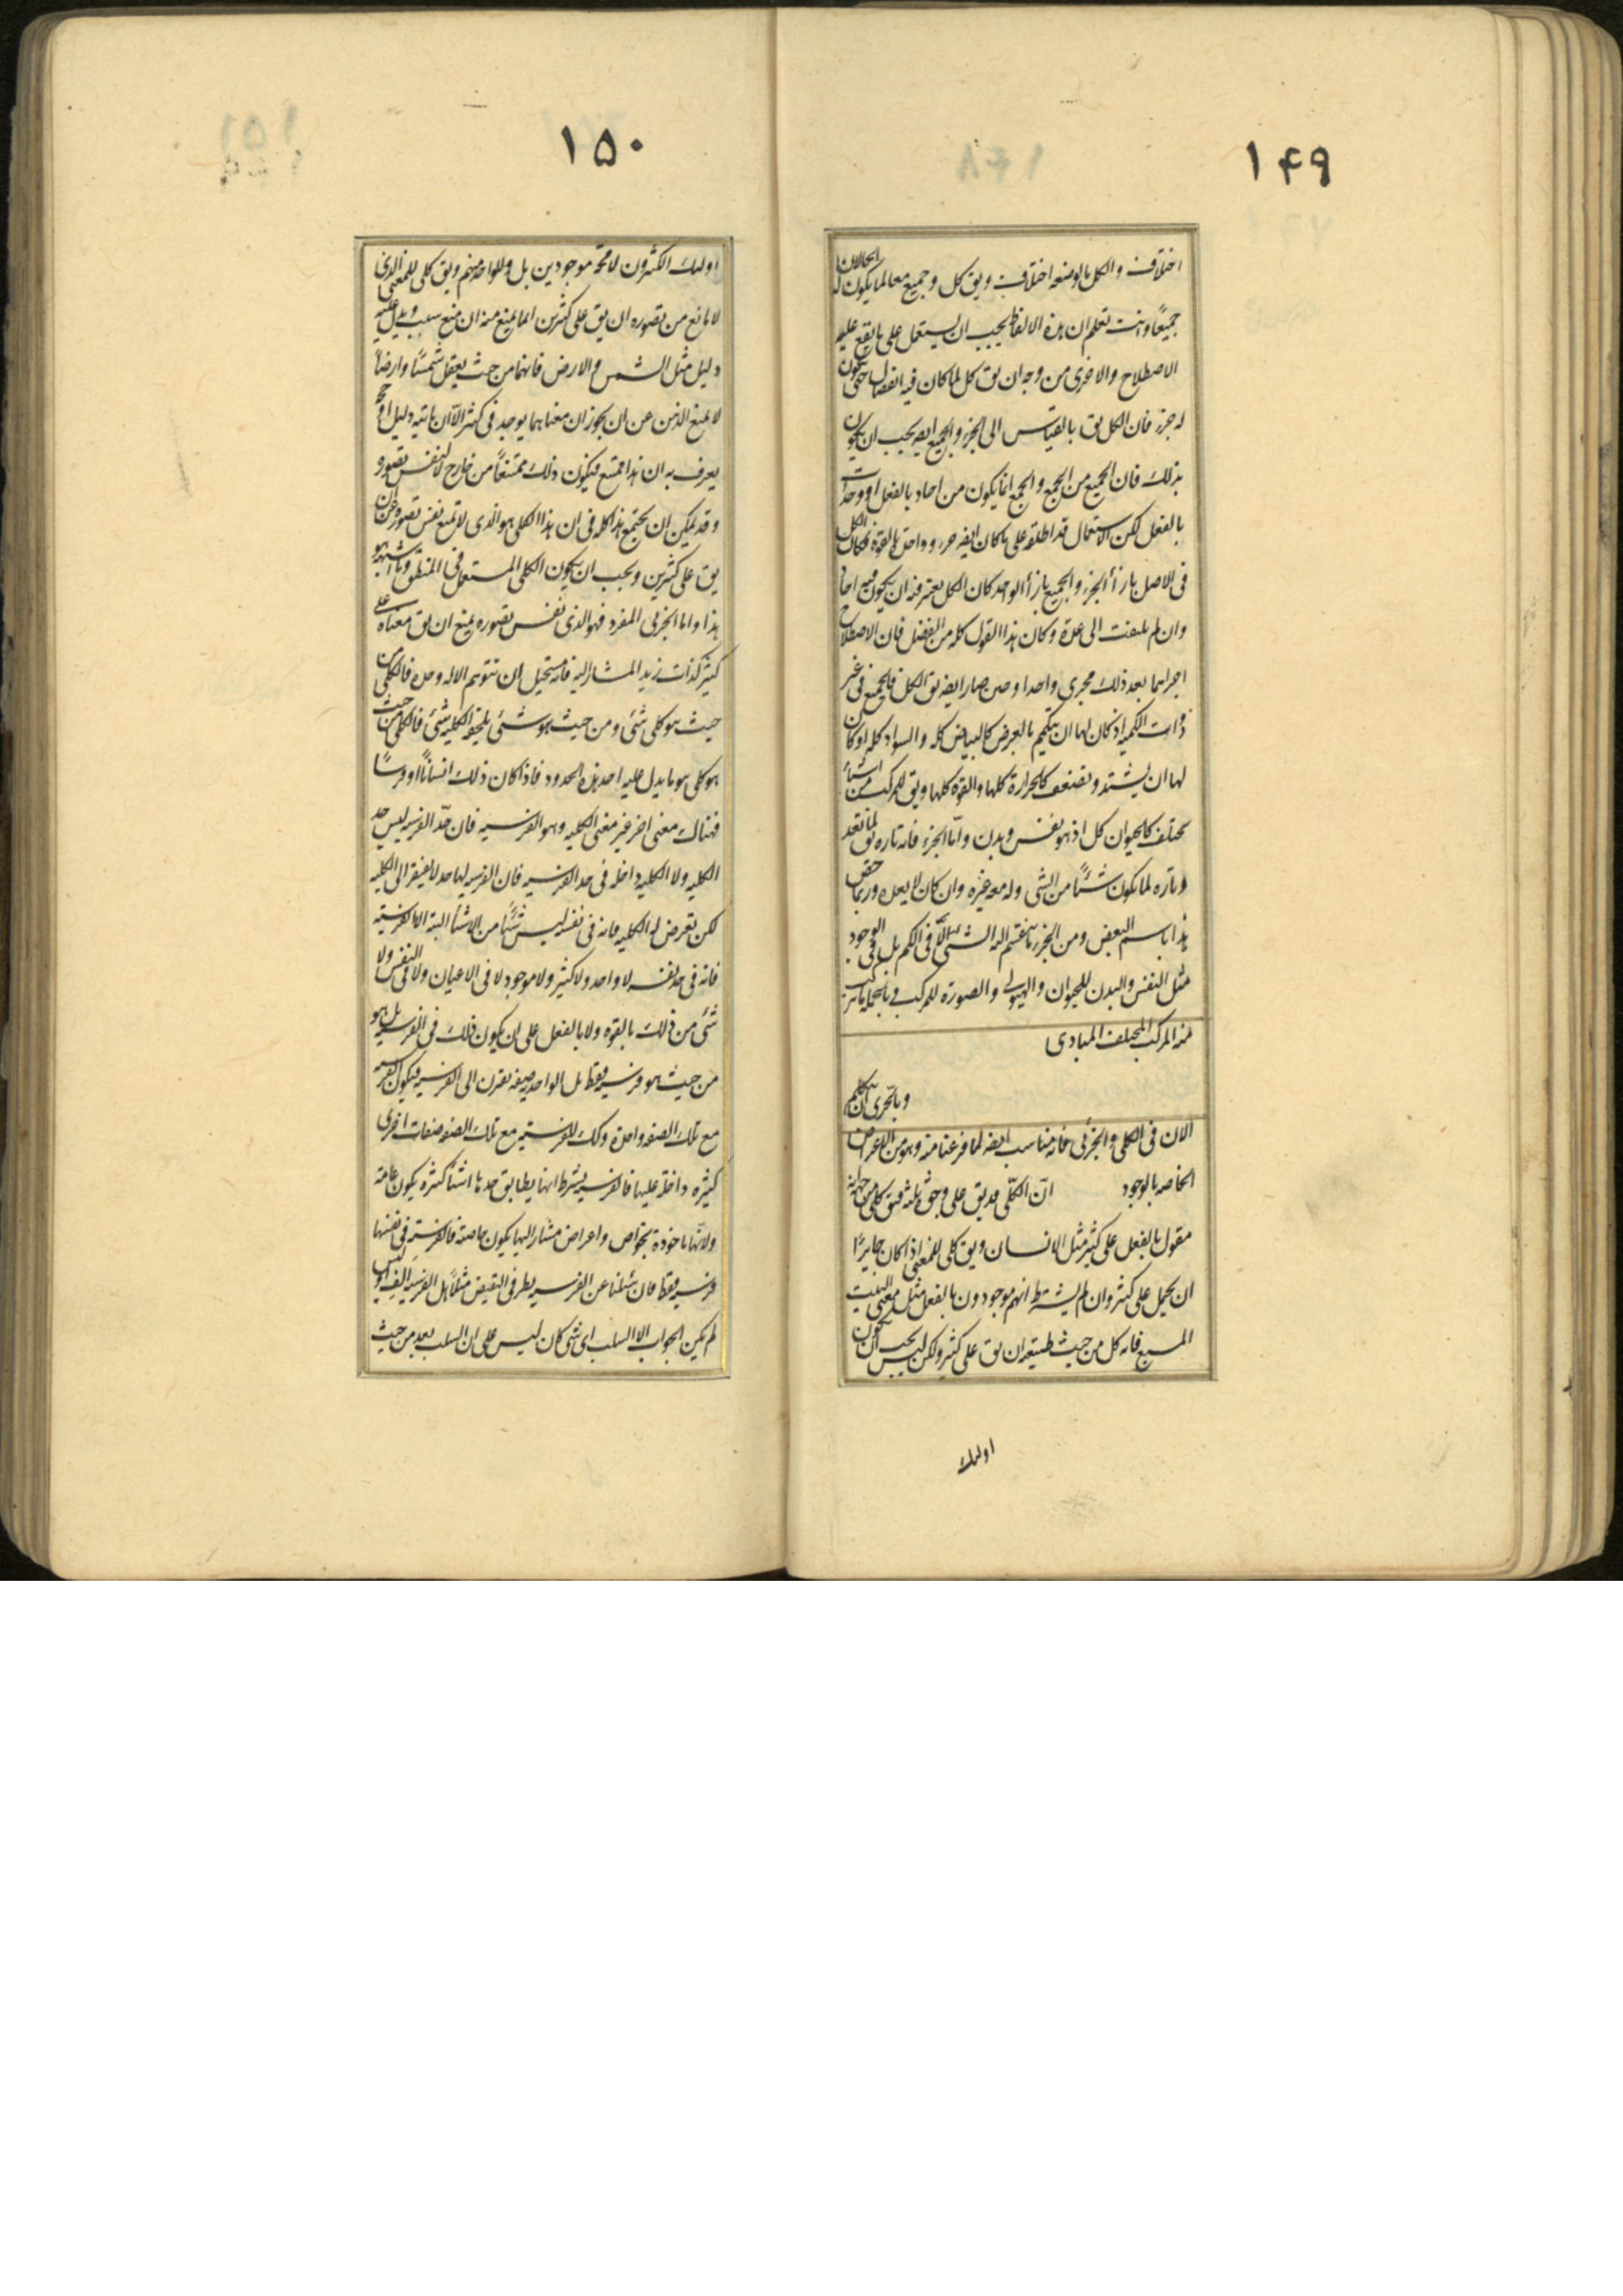 ۱۴۹
اختلاف والكل بالوضعه اختلاف ويق كل وجميع معا لما يكون له الحالان
جميعًا وانت تعلم ان هذه الالفاظ يجب ان يستعمل على ما يقع عليه
الاصطلاح والاحرى من وجه ان يق كل لما كان فيه انفصال حتى يكون
له جزء فان الكل يق بالقياس الى الجزء والجميع ايضه يجب ان يكون
بذلك فان الجميع من الجمع والجمع انما يكون من احاد بالفعل او وحدات
بالفعل لكن الاستعمال قد اطلقه على ما كان ايضه جزءه وواحده بالقوة فكان الكل
فى الاصل بازأ الجزء والجميع بازأ الواحد كان الكل يعتبر فيه ان يكون فيه احاد
وان لم يلتفت الى عدة وكان هذا القول كله من الفضل فان الاصطلاح
اجراهما بعد ذلك مجرى واحدا وحين صار ايضه يق الكل فالجميع فى غير
ذوات الكمية اذ كان لها ان يتكمم بالعرض كالبياض كله والسواد كله او كان
لها ان يشتد وتضعف كالحرارة كلها والقوة كلها ويق للمركب من اشيأ
تختلف كالحيوان كل اذ هو نفس وبدن وامّا الجزء فانه تاره يق لما تعد
وتاره لما يكون شئًا من الشى وله معه غيره وان كان لا يعده وربما خص
هذا باسم البعض ومن الجزء ما ينقسم اليه الشى لا فى الكم بل فى الوجود
مثل النفس والبدن للحيوان والهيولى والصورة للمركب وبالجملة ما يتركب
منه المركب المختلف المبادى
وبالحرى ان نتكلم
الان فى الكلى والجزئى فانه مناسب ايضه لما فرغنا منه وهو من الاعراض
الخاصه بالوجود انّ الكلّى قد يق على وجوه ثلثه فيق كلى من جهة انه
مقول بالفعل على كثير مثل الانسان ويق كلى للمعنى اذا كان جايزًا
ان يحمل على كثير وان لم يشترط انهم موجودون بالفعل مثل معنى البيت
المسبع فانه كل من حيث طبيعته ان يق على كثير ولكن ليس يجب ان يكون
اولئك
۱۵۰
اولئك الكثيرون لا محة موجودين بل ولا الواحد منهم ويق كلى للمعنى الذى
لا مانع من تصوره ان يق على كثيرين انما يمنع منه ان منع سبب ويدل عليه
دليل مثل الشمس والارض فانهما من حيث يعقل شمسًا وارضاً
لا يمنع الذهن عن ان يجوز ان معناهما يوجد فى كثير الّا ان ياتيه دليل او حجة
يعرف به ان هذا ممتنع فيكون ذلك ممتنعًا من خارج لا لنفس تصوره
وقد يمكن ان يجتمع هذا كله فى ان هذا الكلى هو الذى لا تمنع نفس تصوره عن ان
يق على كثيرين ويجب ان يكون الكلى المستعمل فى المنطق وما اشبهه هو
هذا واما الجزئى المفرد فهو الذى نفس تصوره يمنع ان يق معناه على
كثير كذات زيد المشار اليه فانه مستحيل ان تتوهم الا له وحده فالكلى من
حيث هو كلى شئ ومن حيث هو شئ يلحقه الكليه شئ فالكلى من حيث
هو كلى هو ما يدل عليه احد هذه الحدود فاذا كان ذلك انسانًا او فرسًا
فهناك معنى اخر غير معنى الكليه وهو الفرسيه فان حدّ الفرسيه ليس حد
الكليه ولا الكليه داخله فى حد الفرسيه فان الفرسيه لها حد لا يفتقر الى الكليه
لكن تعرض له الكليه فانه فى نفسه ليس شئًا من الاشيأ البتة الا الفرسيّه
فانه فى حد نفسه لا واحد ولا كثير ولا موجود لا فى الاعيان ولا فى النفس ولا
شئ من ذلك بالقوه ولا بالفعل على ان يكون ذلك فى الفرسيه بل هو
من حيث هو فرسيه فقط بل الواحديه صفة تقترن الى الفرسيه فيكون الفرسيه
مع تلك الصفه واحدة وكك للفرسيّه مع تلك الصفه صفات اخرى
كثيره داخلة عليها فالفرسيه بشرط انها يطابق حدها اشيأ كثيره يكون عامة
ولانّها ماخوذة بخواص واعراض مشار اليها يكون خاصّة فالفرسيّه فى نفسها
فرسيه فقط فان سئلنا عن الفرسيه بطرفى النقيض مثلًا هل الفرسيه الف او ليس
لم يكن الجواب الا السلب اى شى كان ليس على ان السلب بعد من حيث